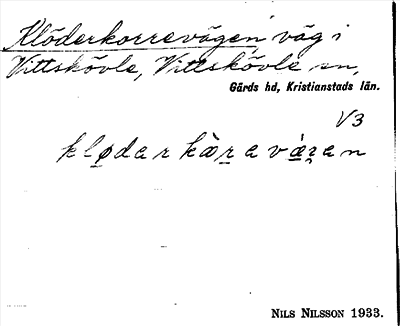 Klöderkorrevägen, väg i
Vittskövle, Vittskövle sn,
Gärds hd, Kristianstads län.
V3
kløderkàrevá̱gen
NILS NILSSON 1933.